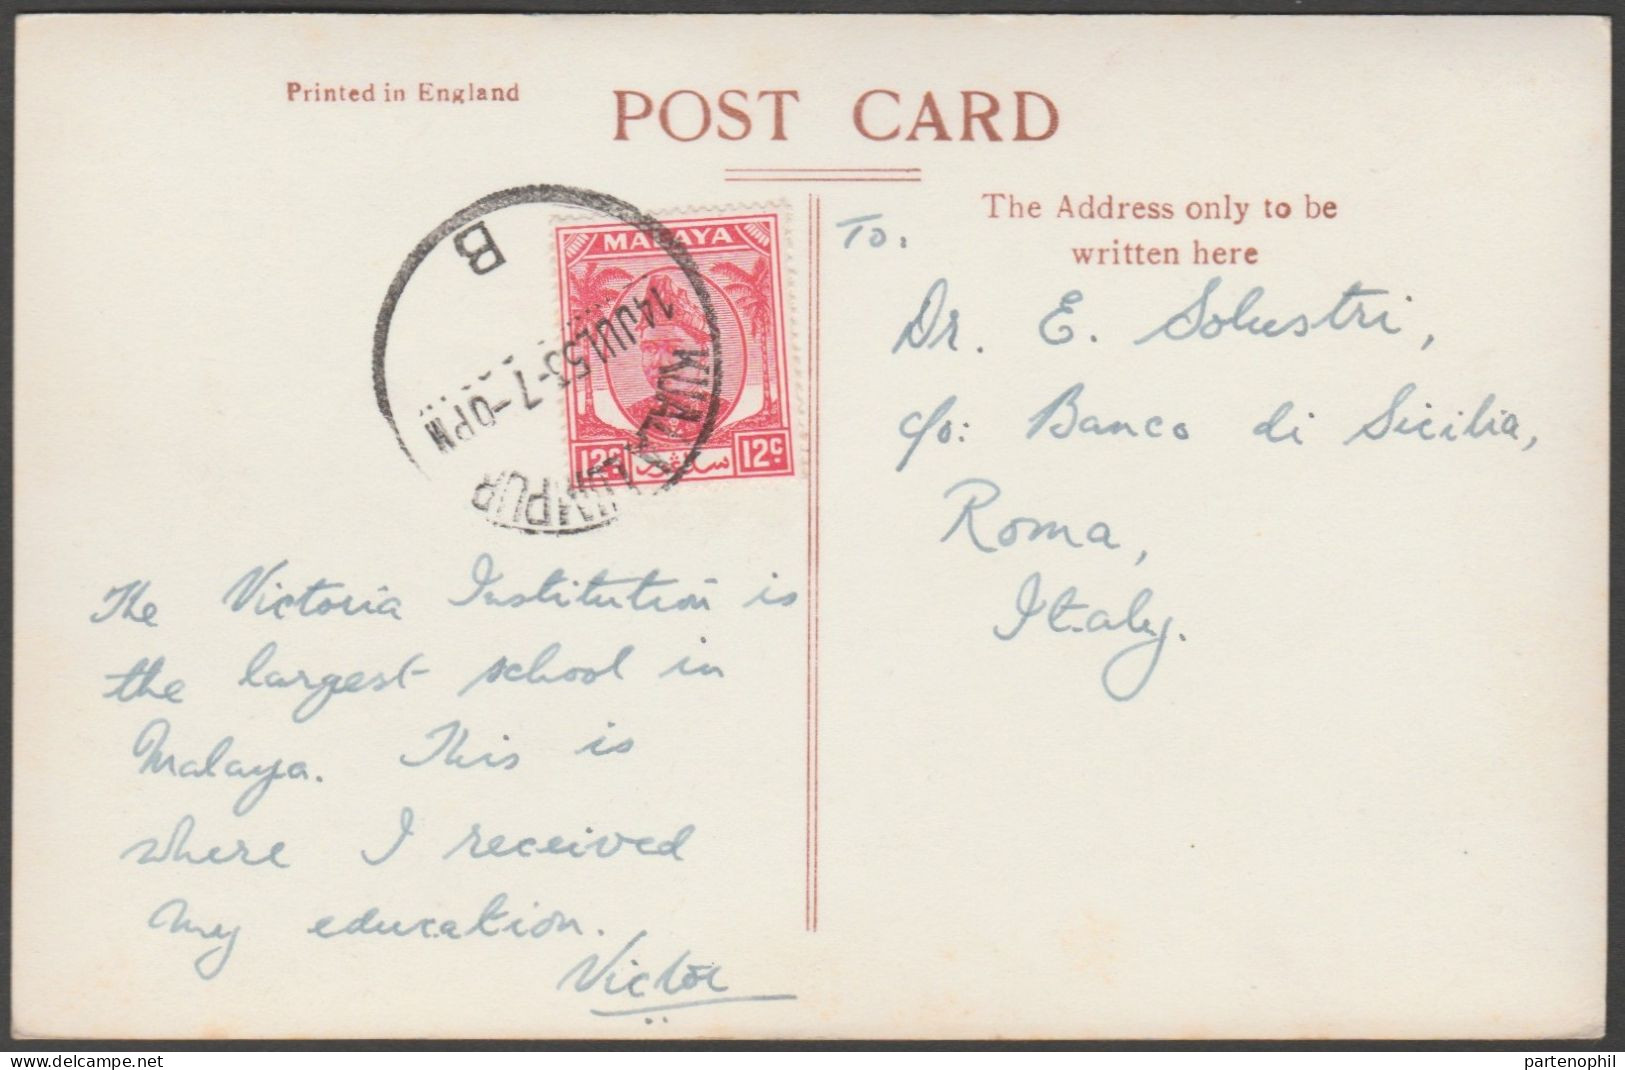 Printed in England
POST CARD
The Address only to be
written here
B
14 JUL 53-7-0PM
KUALA LUMPUR
MALAYA
12c 12c
سلاڠور
To:
Dr. E. Solustri,
c/o: Banco di Sicilia,
Roma,
Italy.
The Victoria Institution is
the largest school in
Malaya. This is
where I received
my education.
Victor
partenophil